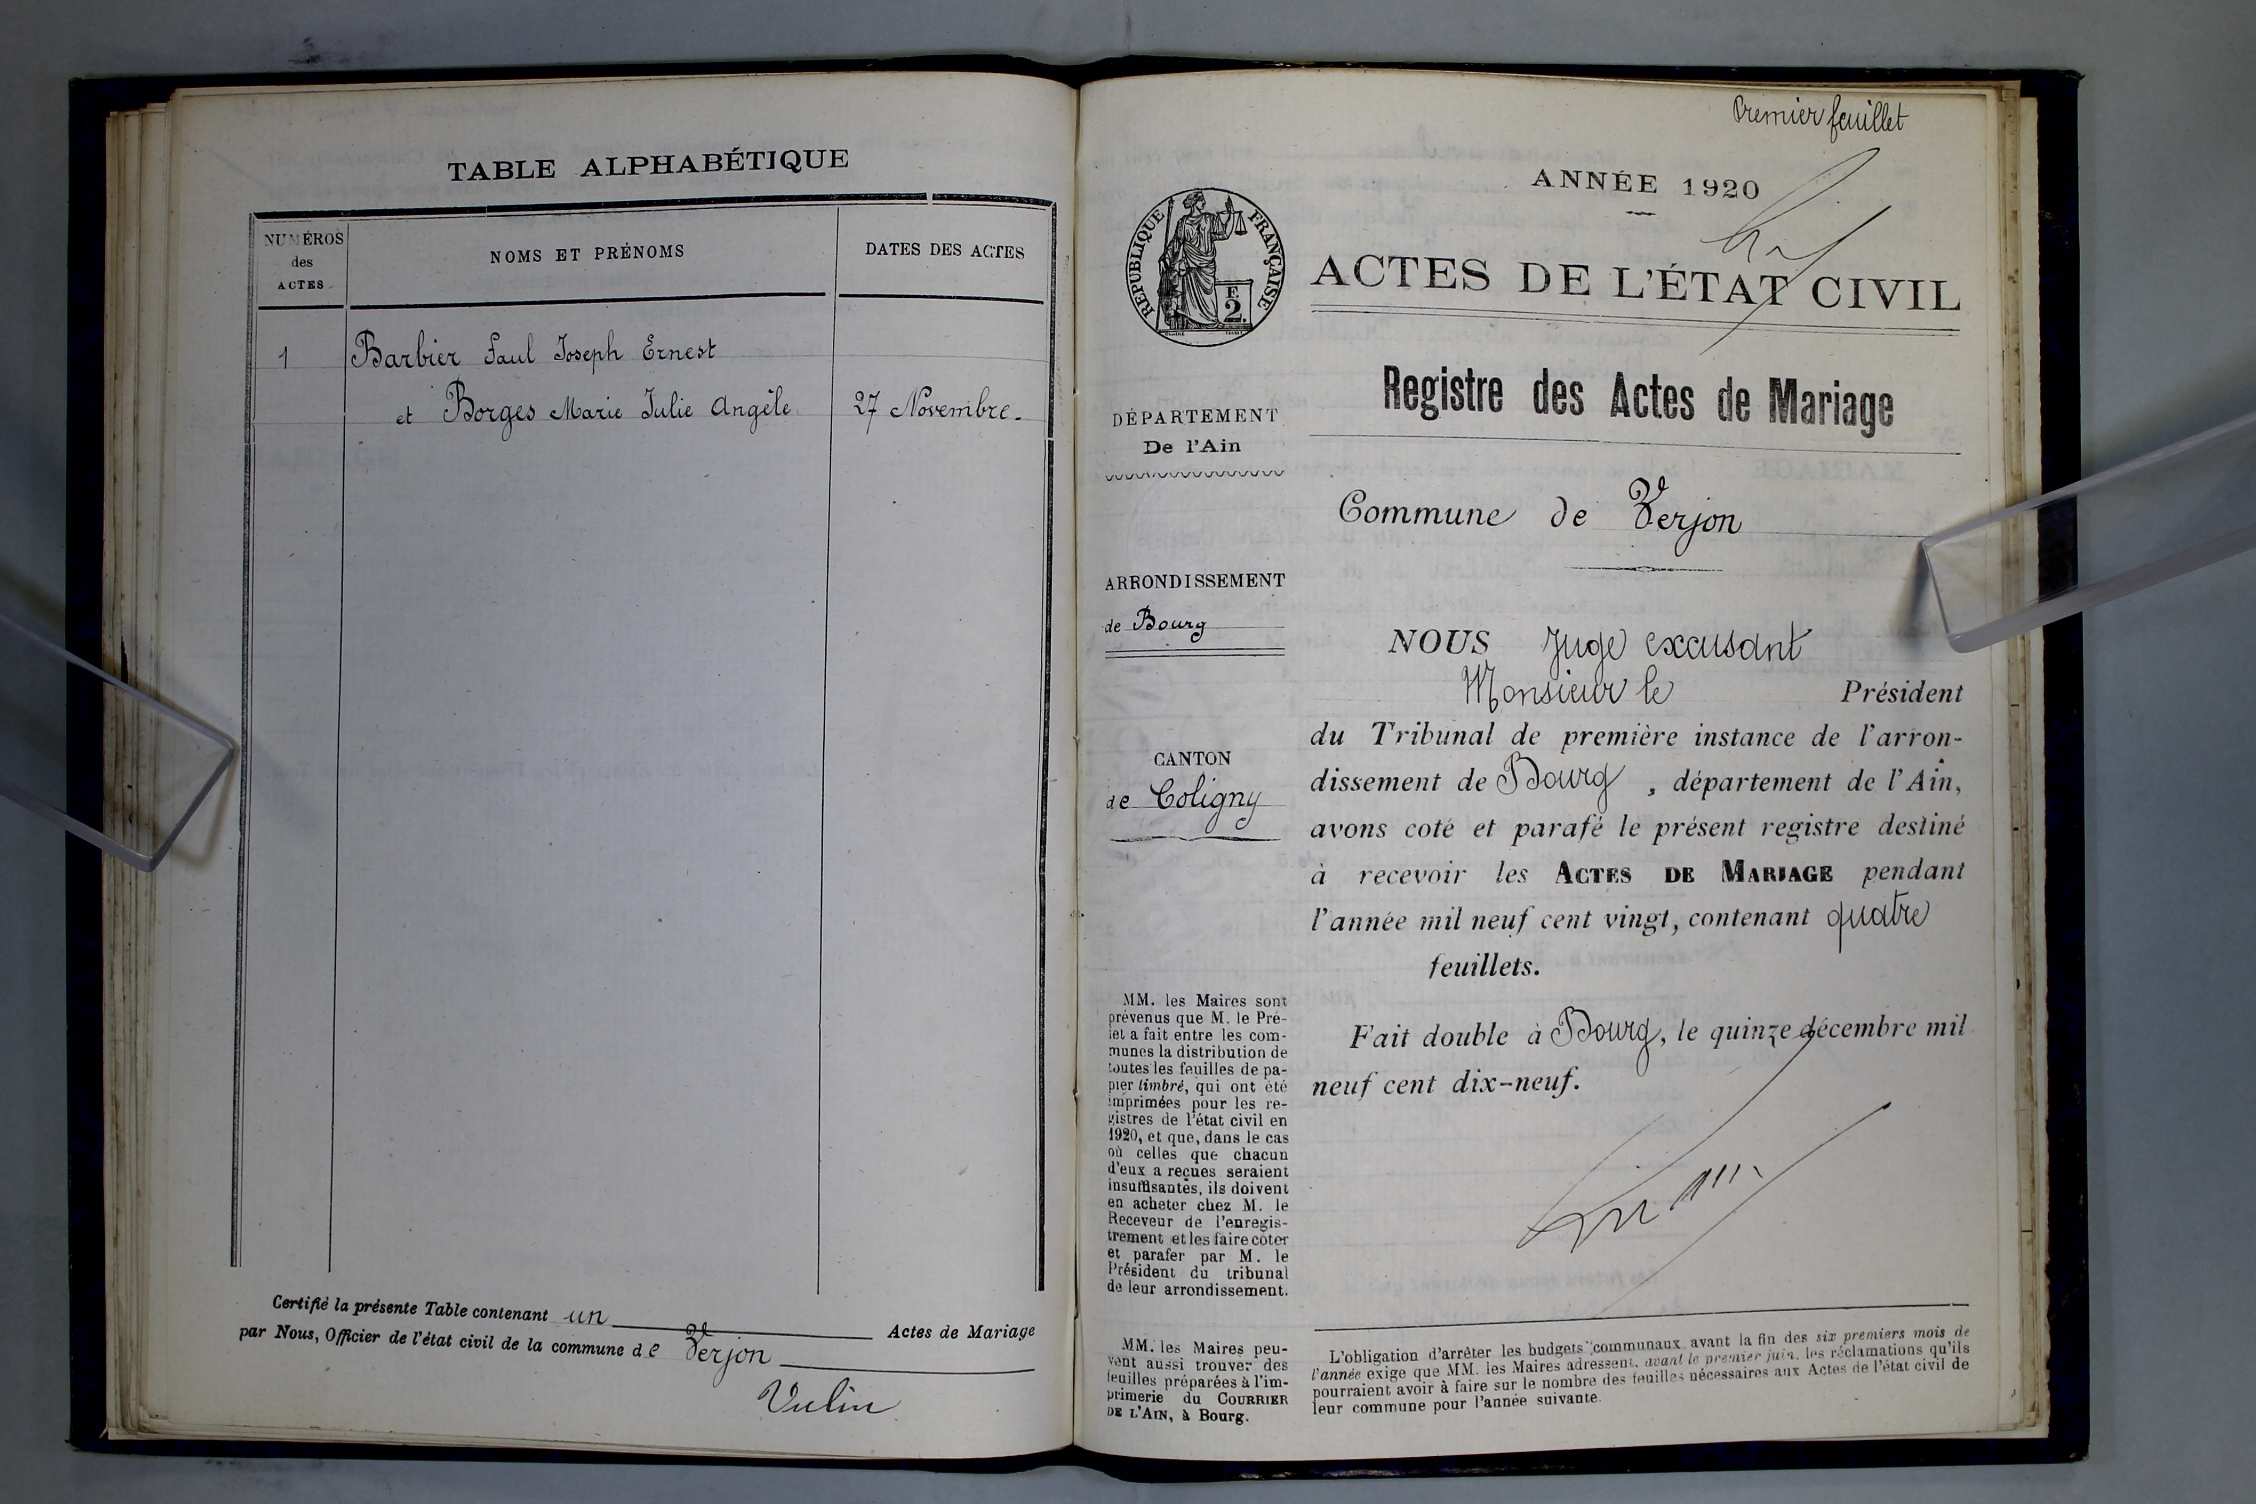 TABLE ALPHABÉTIQUE
NUMÉROS
des
ACTES
NOMS ET PRÉNOMS
DATES DES ACTES
1
Barbier Paul Joseph Ernest
et Borges Marie Julie Angèle
27 Novembre.
Certifié la présente Table contenant un Actes de Mariage
par Nous, Officier de l'état civil de la commune de Verjon
Vulin
Premier feuillet
ANNÉE 1920
RÉPUBLIQUE FRANÇAISE
F.
2.
ACTES DE L'ÉTAT CIVIL
Registre des Actes de Mariage
DÉPARTEMENT
De l'Ain
Commune de Verjon
ARRONDISSEMENT
de Bourg
CANTON
de Coligny
NOUS Juge excusant
Monsieur le Président
du Tribunal de première instance de l'arron-
dissement de Bourg, département de l'Ain,
avons coté et parafé le présent registre destiné
à recevoir les ACTES DE MARIAGE pendant
l'année mil neuf cent vingt, contenant quatre
feuillets.
Fait double à Bourg, le quinze décembre mil
neuf cent dix-neuf.
MM. les Maires sont
prévenus que M. le Pré-
fet a fait entre les com-
munes la distribution de
toutes les feuilles de pa-
pier timbré, qui ont été
imprimées pour les re-
gistres de l'état civil en
1920, et que, dans le cas
où celles que chacun
d'eux a reçues seraient
insuffisantes, ils doivent
en acheter chez M. le
Receveur de l'enregis-
trement et les faire coter
et parafer par M. le
Président du tribunal
de leur arrondissement.
MM. les Maires peu-
vent aussi trouver des
feuilles préparées à l'im-
primerie du COURRIER
DE L'AIN, à Bourg.
L'obligation d'arrêter les budgets communaux avant la fin des six premiers mois de
l'année exige que MM. les Maires adressent, avant le premier juin, les réclamations qu'ils
pourraient avoir à faire sur le nombre des feuilles nécessaires aux Actes de l'état civil de
leur commune pour l'année suivante.